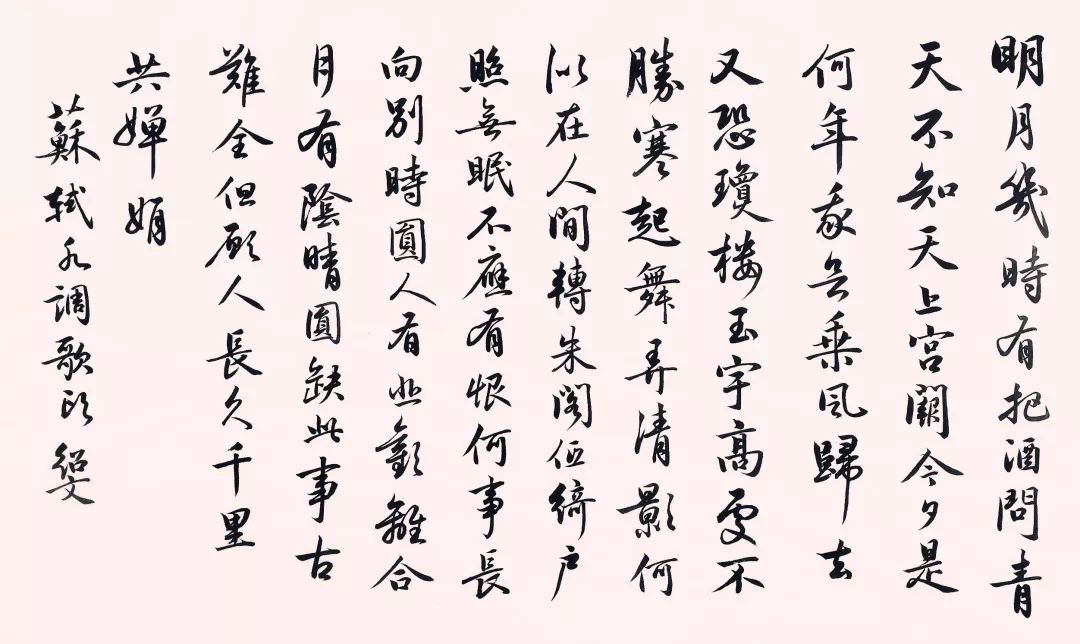 明月幾時有把酒問青
天不知天上宮闕今夕是
何年我欲乘風歸去
又恐瓊樓玉宇高處不
勝寒起舞弄清影何
似在人間轉朱閣低綺户
照無眠不應有恨何事長
向別時圓人有悲歡離合
月有陰晴圓缺此事古
難全但願人長久千里
共嬋娟
蘇軾水調歌頭